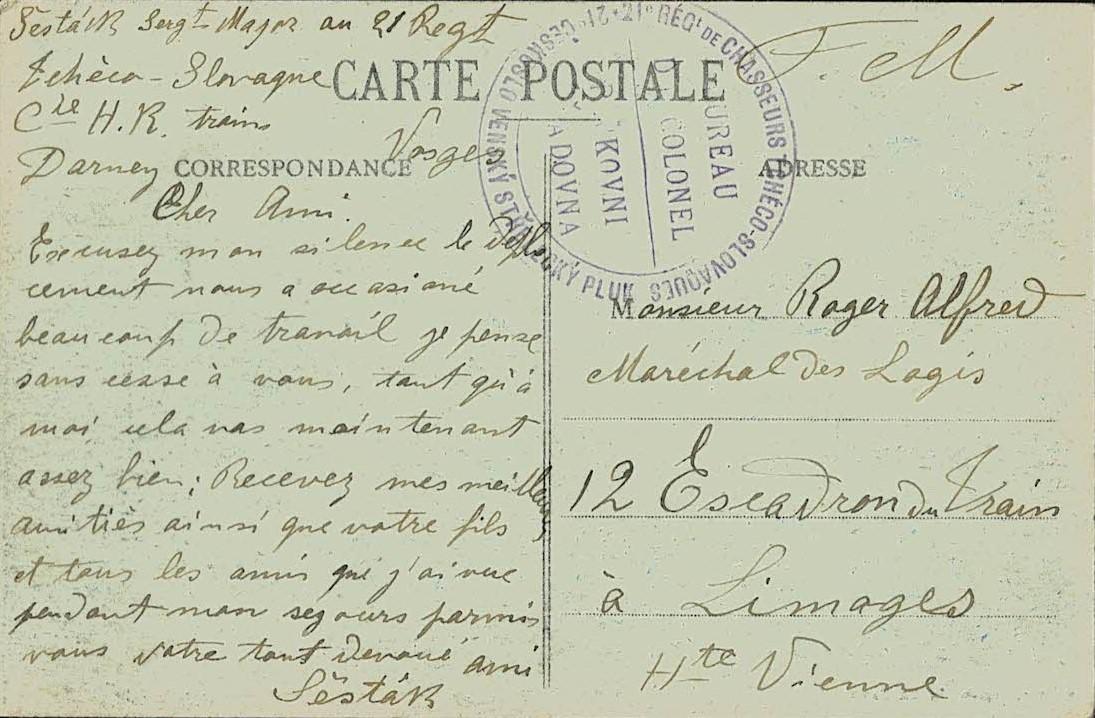 Šesták Sergt Major au 21 Regt
Tchèco-Slovaque
Cie H.R. trains
Darney Vosges
CARTE POSTALE
F. M.
CORRESPONDANCE
ADRESSE
21e RÉGt DE CHASSEURS TCHÉCO-SLOVAQUES
ČESKOSLOVENSKÝ STŘELECKÝ PLUK
BUREAU
COLONEL
KOVNI
ADOVNA
Cher Ami.
Excusez mon silence le dépla
cement nous a occasioné
beaucoup de travail je pense
sans cesse à vous, tant qu'à
moi cela vas maintenant
assez bien; Recevez mes meilleurs
amitiés ainsi que votre fils
et tous les amis que j'ai vue
pendant mon segours parmis
vous votre tout devoué ami
Šesták
Monsieur Roger Alfred
Maréchal des Logis
12 Escadron du Train
à Limoges
Hte Vienne